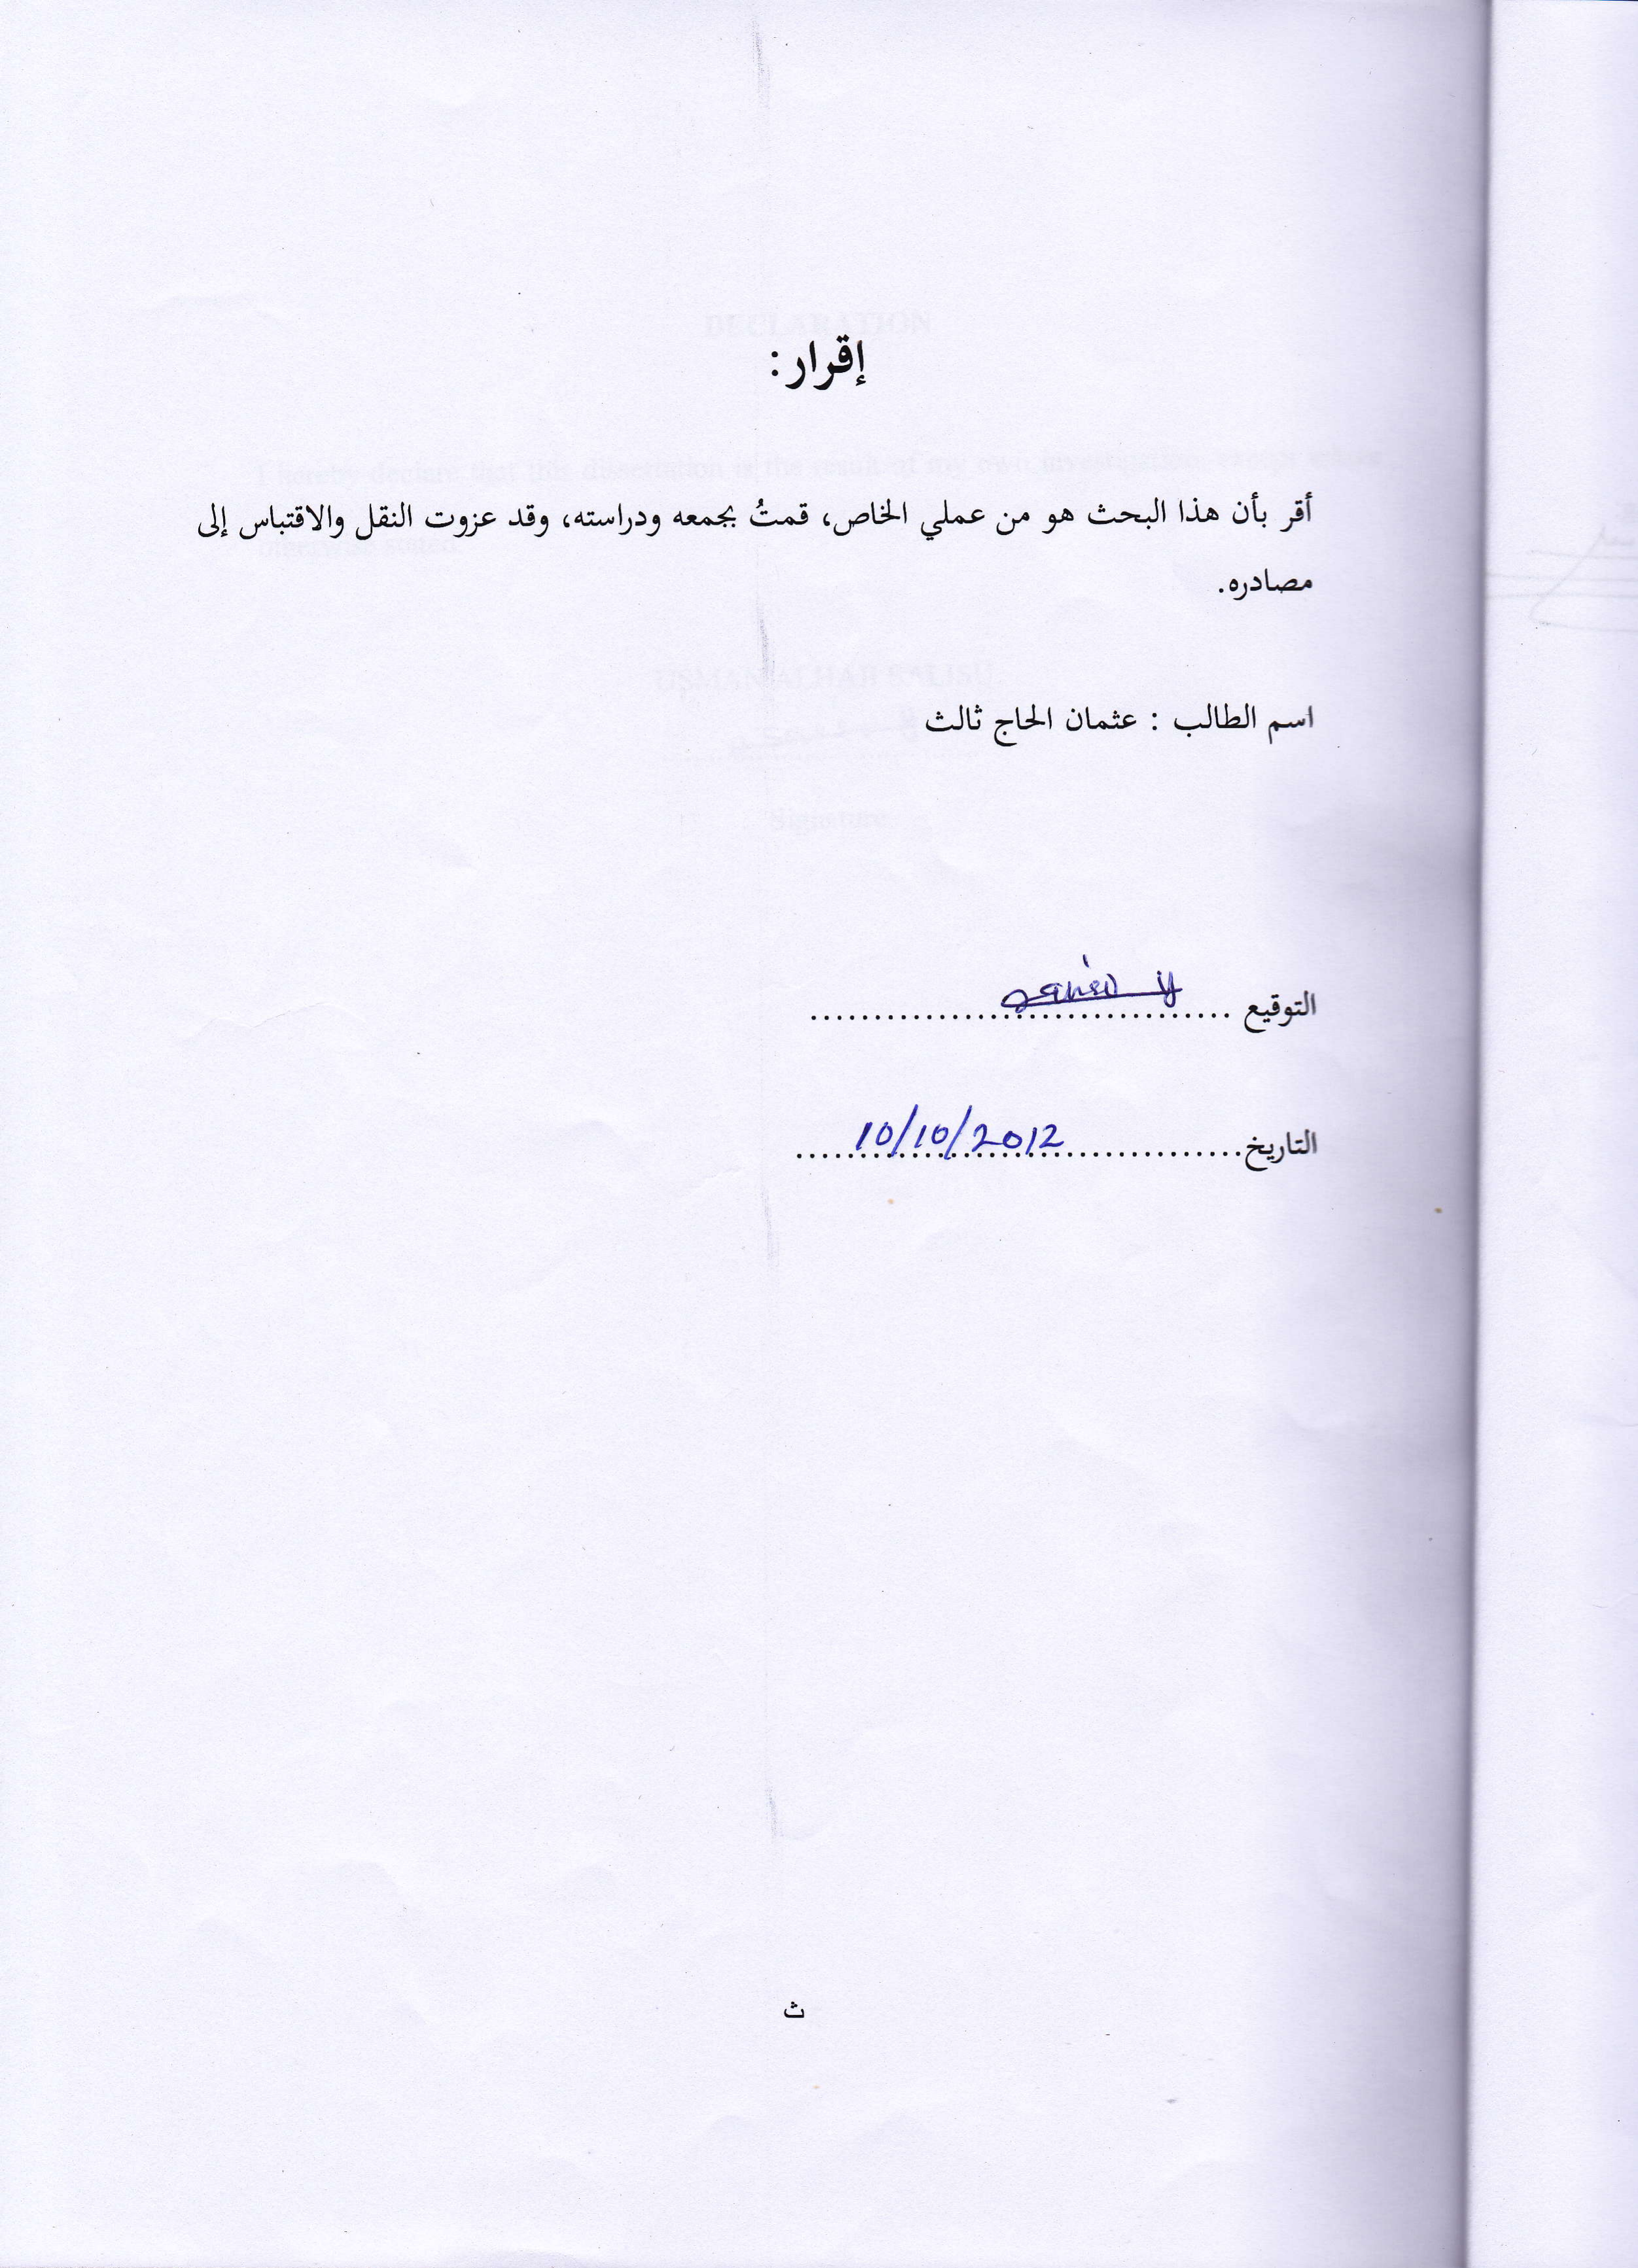 إقرار:
أقر بأن هذا البحث هو من عملي الخاص، قمتُ بجمعه ودراسته، وقد عزوت النقل والاقتباس إلى
مصادره.
اسم الطالب : عثمان الحاج ثالث
التوقيع .................................
التاريخ................................... 10/10/2012
ث